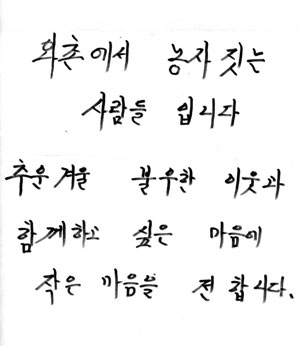 외촌에서 농사 짓는
사람들 입니다
추운겨울 불우한 이웃과
함께하고 싶은 마음에
작은 마음을 전 합니다.